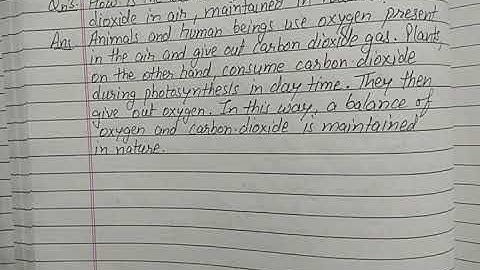 Qns. How is the
dioxide in air, maintained in
Ans. Animals and human beings use oxygen present
in the air and give out carbon dioxide gas. Plants,
on the other hand, consume carbon-dioxide
during photosynthesis in day time. They then
give out oxygen. In this way, a balance of
oxygen and carbon-dioxide is maintained
in nature.